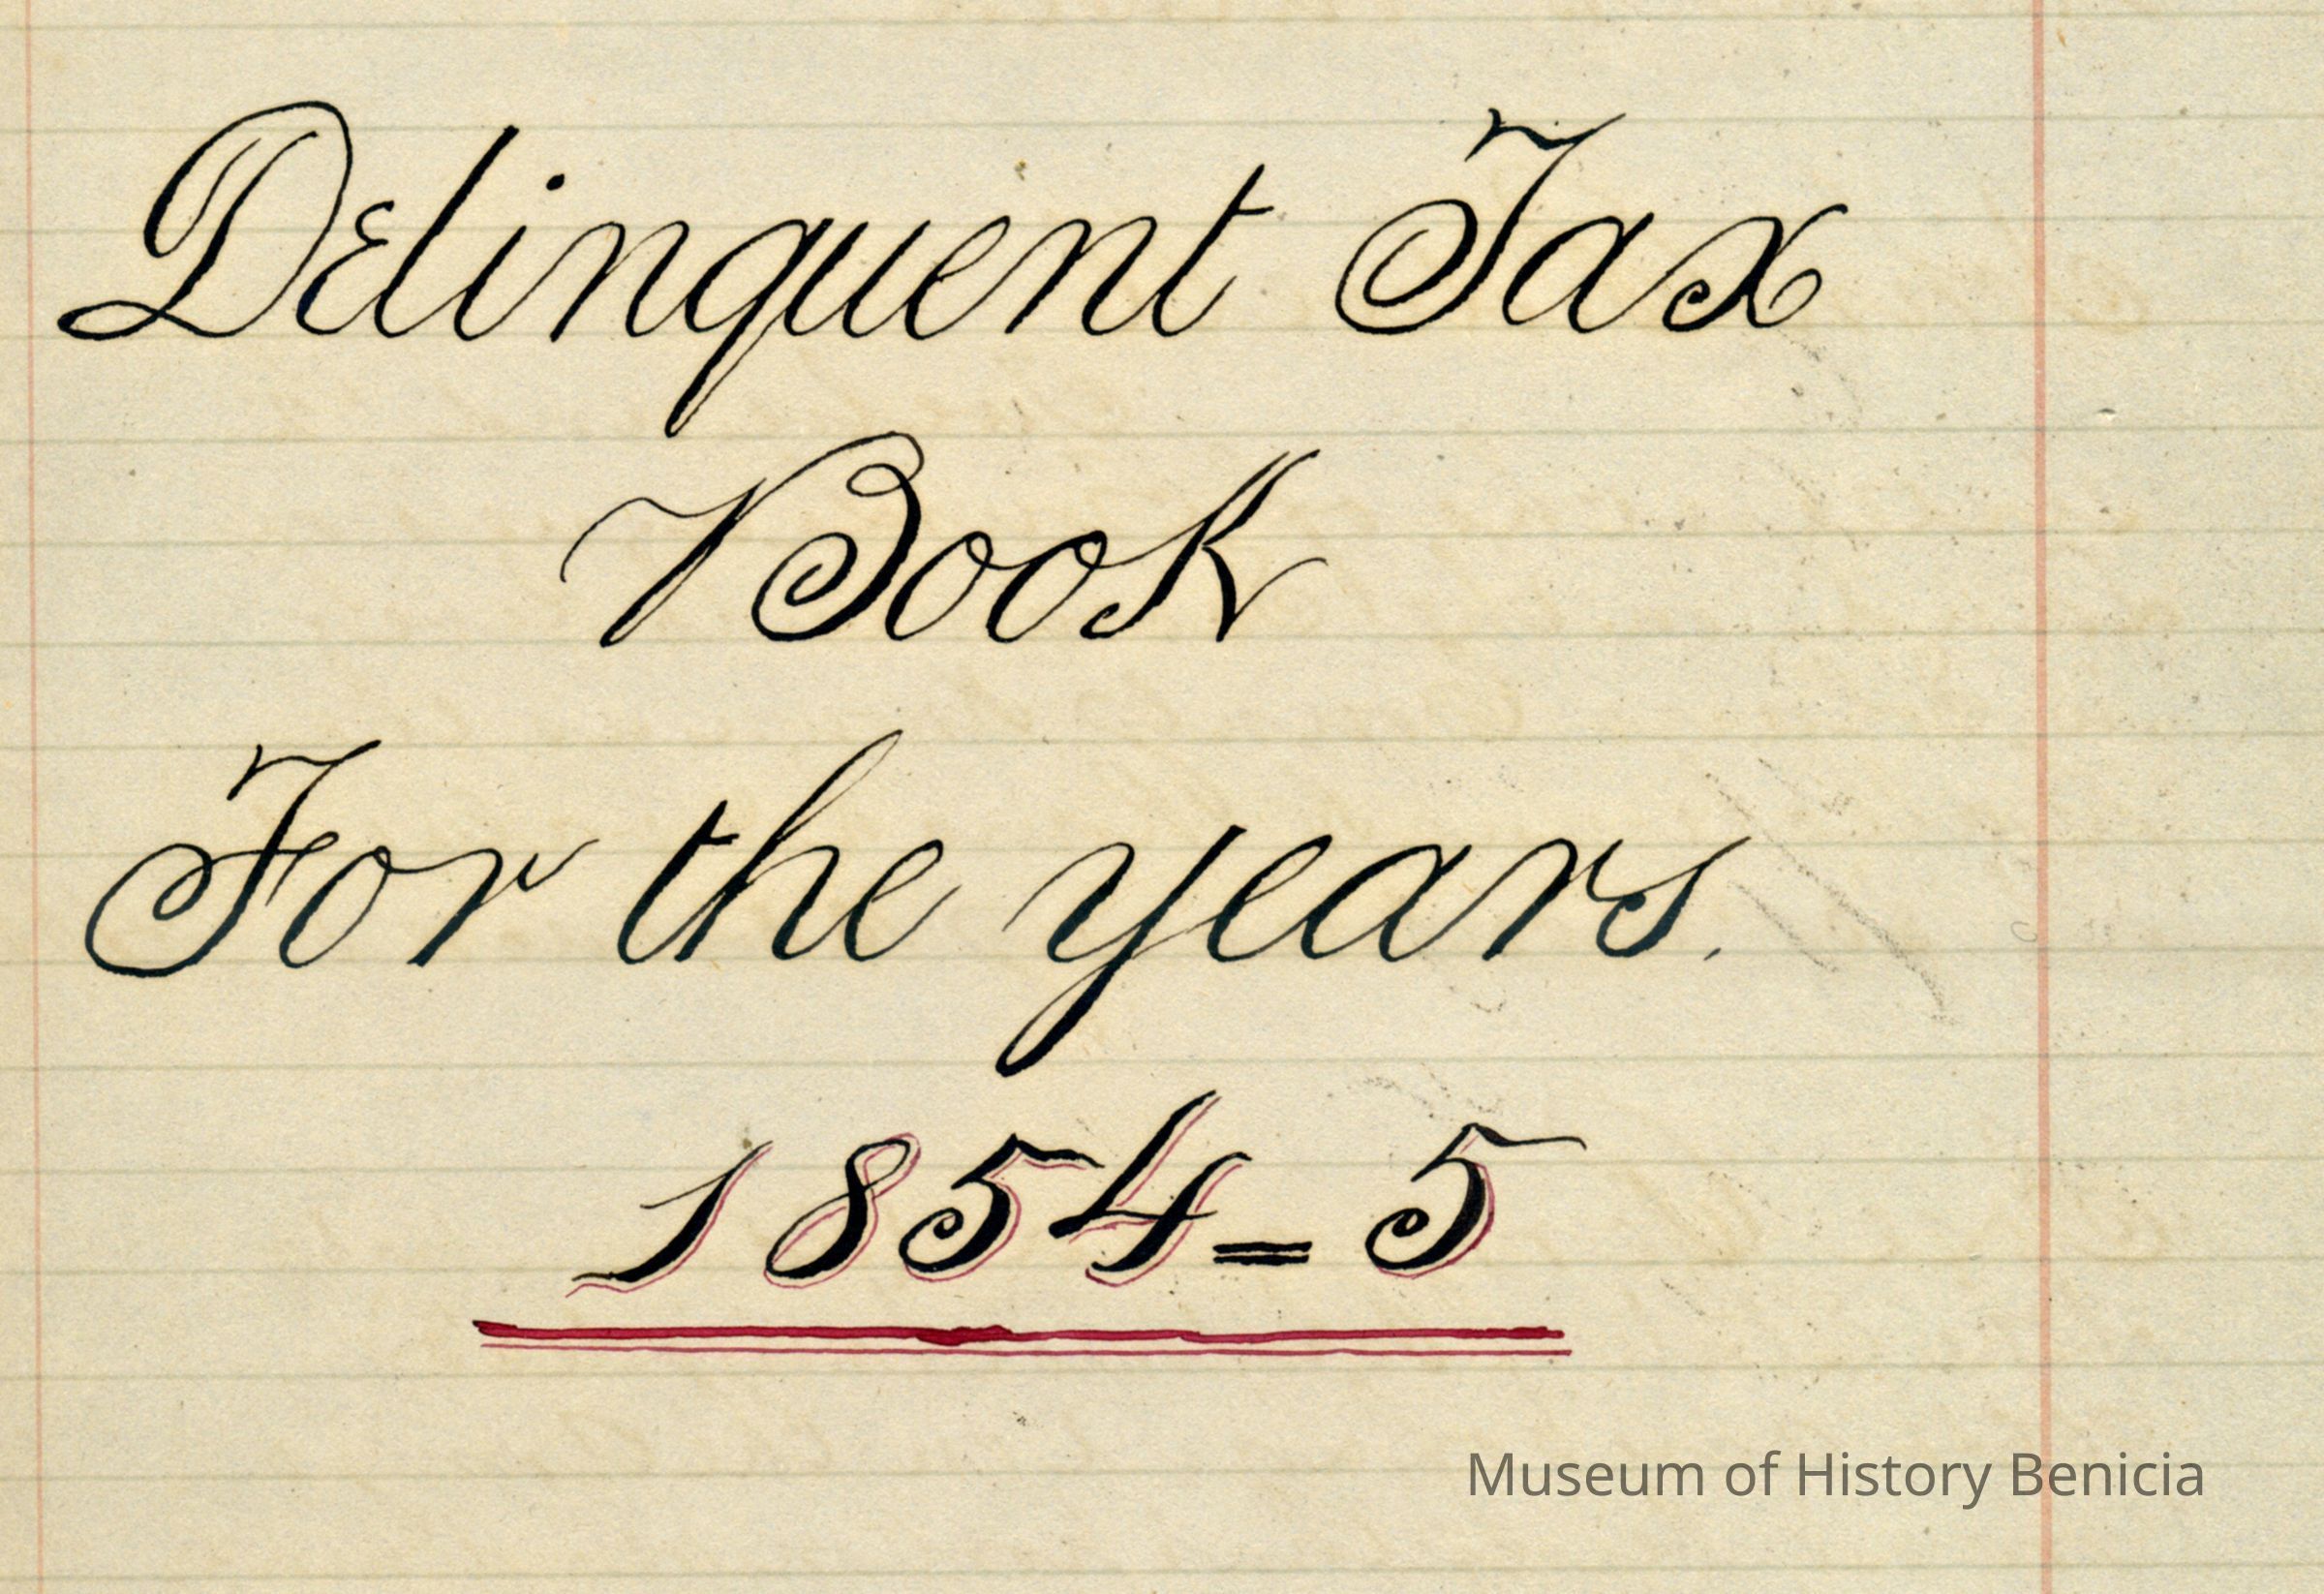 Delinquent Tax
Book
For the years.
1854=5
Museum of History Benicia